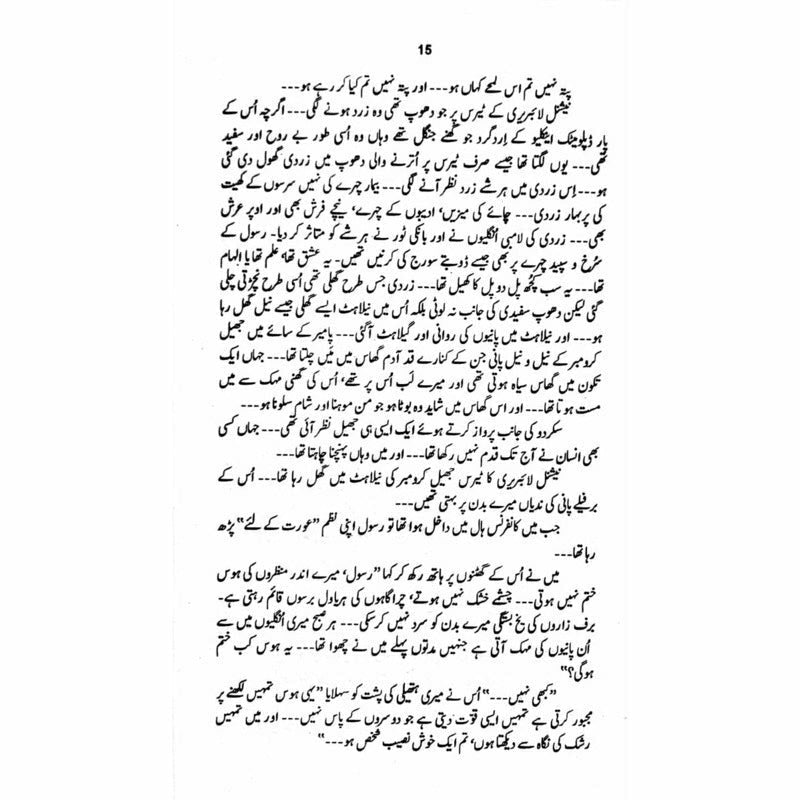 15
پتہ نہیں تم اس لمحے کہاں ہو--- اور پتہ نہیں تم کیا کر رہے ہو---
نیشنل لائبریری کے ٹیرس پر جو دھوپ تھی وہ زرد ہونے لگی--- اگرچہ اُس کے
پار ڈپلومیٹک اینکلیو کے اِردگرد جو گھنے جنگل تھے وہاں وہ اُسی طور بے روح اور سفید
تھی--- یوں لگتا تھا جیسے صرف ٹیرس پر اُترنے والی دھوپ میں زردی گھول دی گئی
ہو--- اِس زردی میں ہر شے زرد نظر آنے لگی--- بیمار چہرے کی نہیں سرسوں کے کھیت
کی پربہار زردی--- چائے کی میزیں، ادیبوں کے چہرے، نیچے فرش بھی اور اوپر عرش
بھی--- زردی کی لامبی اُنگلیوں نے اور بانکی ٹور نے ہر شے کو متاثر کر دیا۔ رسول کے
سُرخ و سپید چہرے پر بھی جیسے ڈوبتے سورج کی کرنیں تھیں۔ یہ عشق تھا، علم تھا یا الہام
تھا--- یہ سب کچھ پل دو پل کا کھیل تھا--- زردی جس طرح گھلی تھی اُسی طرح نچڑتی چلی
گئی لیکن دھوپ سفیدی کی جانب نہ لوٹی بلکہ اُس میں نیلاہٹ ایسے گھلی جیسے نیل گھل رہا
ہو--- اور نیلاہٹ میں پانیوں کی روانی اور گیلاہٹ آگئی--- پامیر کے سائے میں جھیل
کرومبر کے نیل و نیل پانی جن کے کنارے قد آدم گھاس میں مَیں چلتا تھا--- جہاں ایک
تکون میں گھاس سیاہ ہوتی تھی اور میرے لَب اُس پر تھے، اُس کی گھنی مہک سے میں
مست ہوتا تھا--- اور اس گھاس میں شاید وہ بوٹا ہو جو من موہنا اور شام سلونا ہو---
سکردو کی جانب پرواز کرتے ہوئے ایک ایسی ہی جھیل نظر آئی تھی--- جہاں کسی
بھی انسان نے آج تک قدم نہیں رکھا تھا--- اور میں وہاں پہنچنا چاہتا تھا---
نیشنل لائبریری کا ٹیرس جھیل کرومبر کی نیلاہٹ میں گھل رہا تھا--- اُس کے
برفیلے پانی کی ندیاں میرے بدن پر بہتی تھیں---
جب میں کانفرنس ہال میں داخل ہوا تھا تو رسول اپنی نظم ”عورت کے لئے“ پڑھ
رہا تھا---
میں نے اُس کے گھٹنوں پر ہاتھ رکھ کر کہا ”رسول، میرے اندر منظروں کی ہوس
ختم نہیں ہوتی--- چشمے خشک نہیں ہوتے، چراگاہوں کی ہریاول برسوں قائم رہتی ہے۔
برف زاروں کی یخ بستگی میرے بدن کو سرد نہیں کرسکی--- ہر صبح میری اُنگلیوں میں سے
اُن پانیوں کی مہک آتی ہے جنہیں مدتوں پہلے میں نے چھوا تھا--- یہ ہوس کب ختم
ہوگی؟“
”کبھی نہیں---“ اُس نے میری ہتھیلی کی پشت کو سہلایا ”یہی ہوس تمہیں لکھنے پر
مجبور کرتی ہے تمہیں ایسی قوت دیتی ہے جو دوسروں کے پاس نہیں--- اور میں تمہیں
رشک کی نگاہ سے دیکھتا ہوں، تم ایک خوش نصیب شخص ہو---“